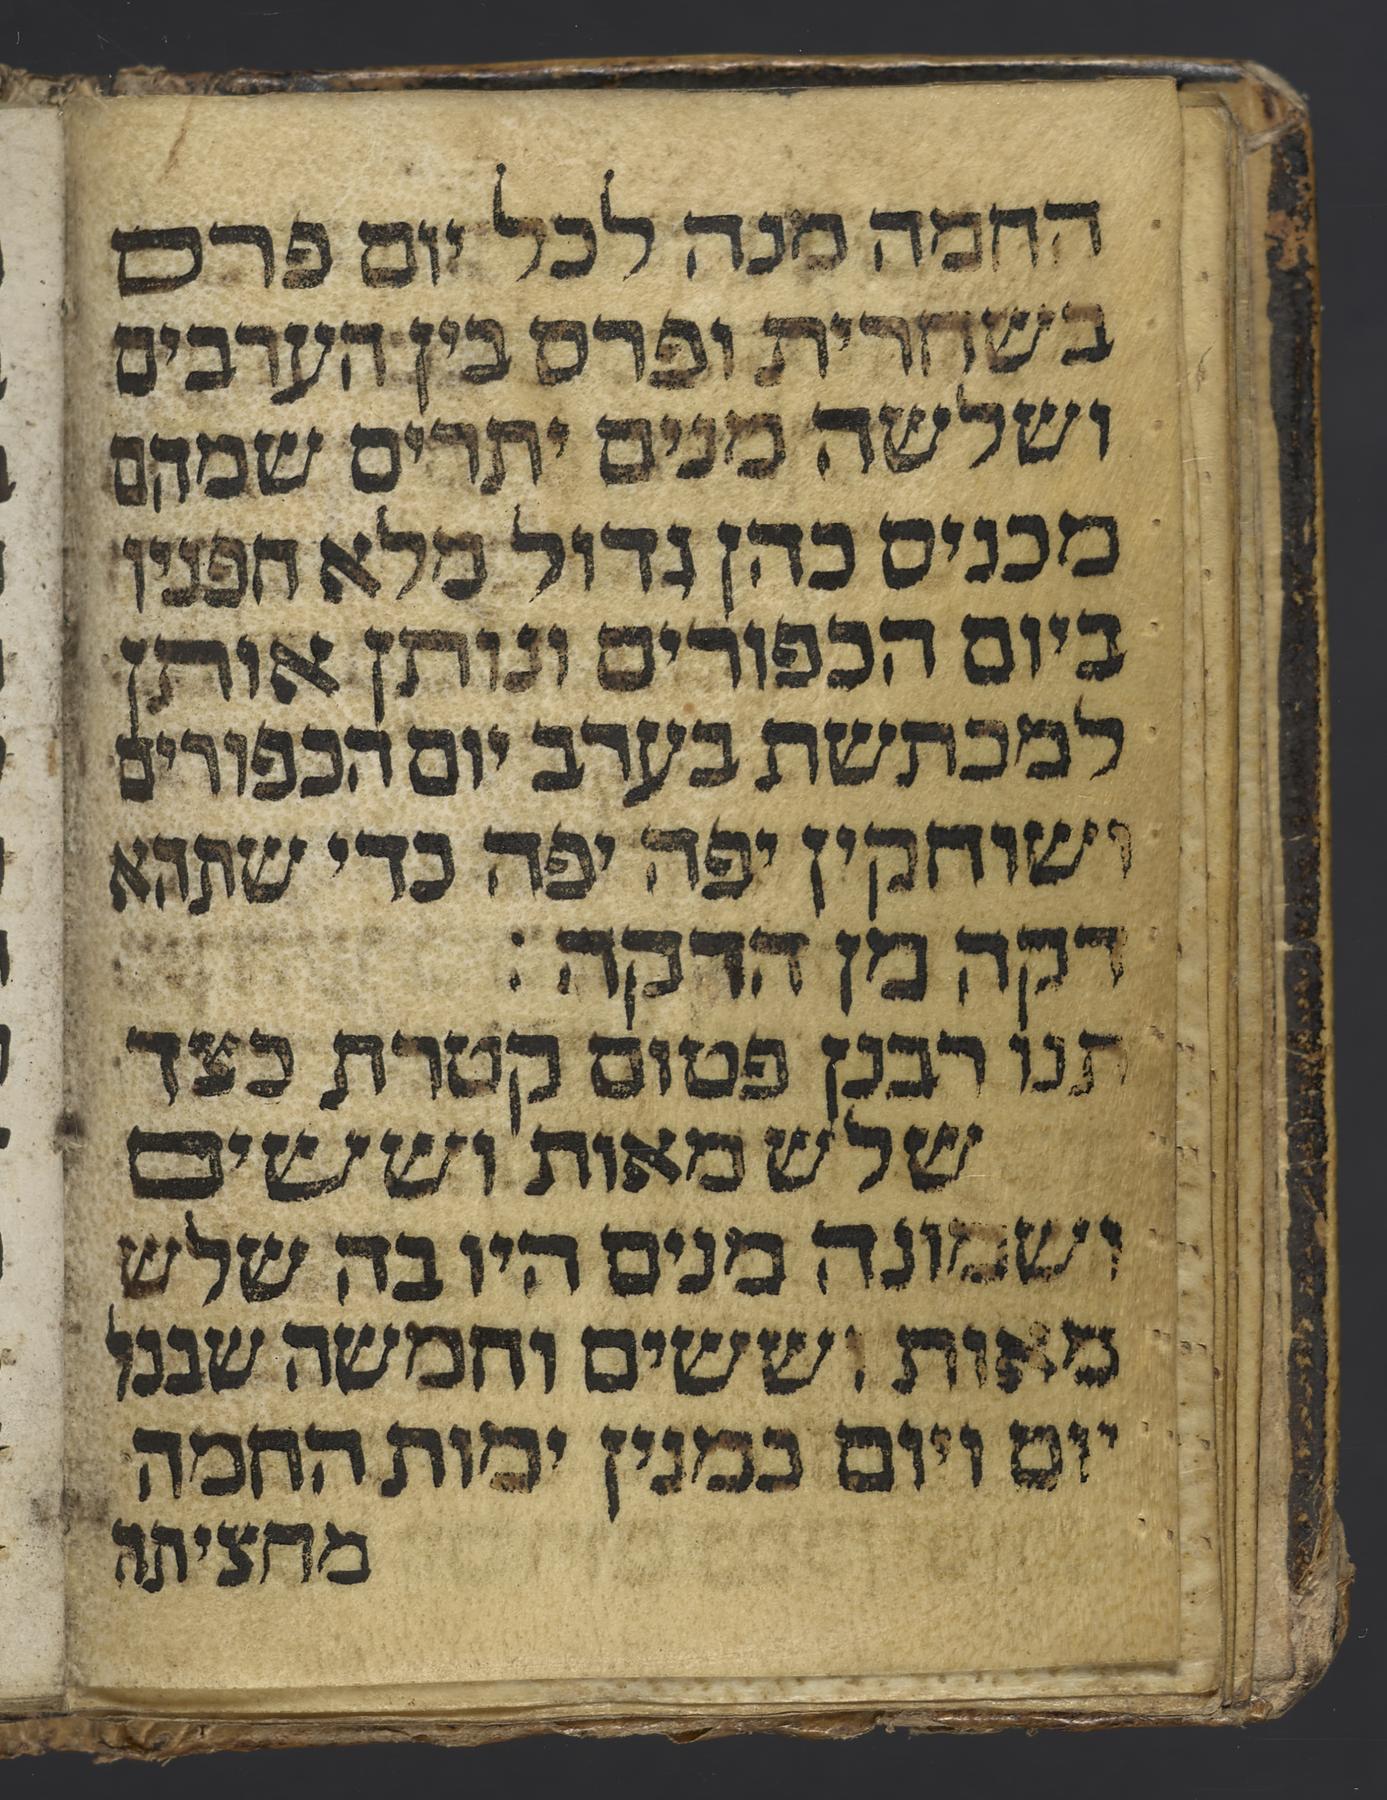 החמה מנה לכל יום פרס
בשחרית ופרס בין הערבים
ושלשה מנים יתרים שמהם
מכניס כהן גדול מלא חפניו
ביום הכפורים ונותן אותן
למכתשת בערב יום הכפורים
ושוחקין יפה יפה כדי שתהא
דקה מן הדקה :
תנו רבנן פטום קטרת כצד
שלש מאות וששים
ושמונה מנים היו בה שלש
מאות וששים וחמשה שבכל
יום ויום כמנין ימות החמה
מחציתה